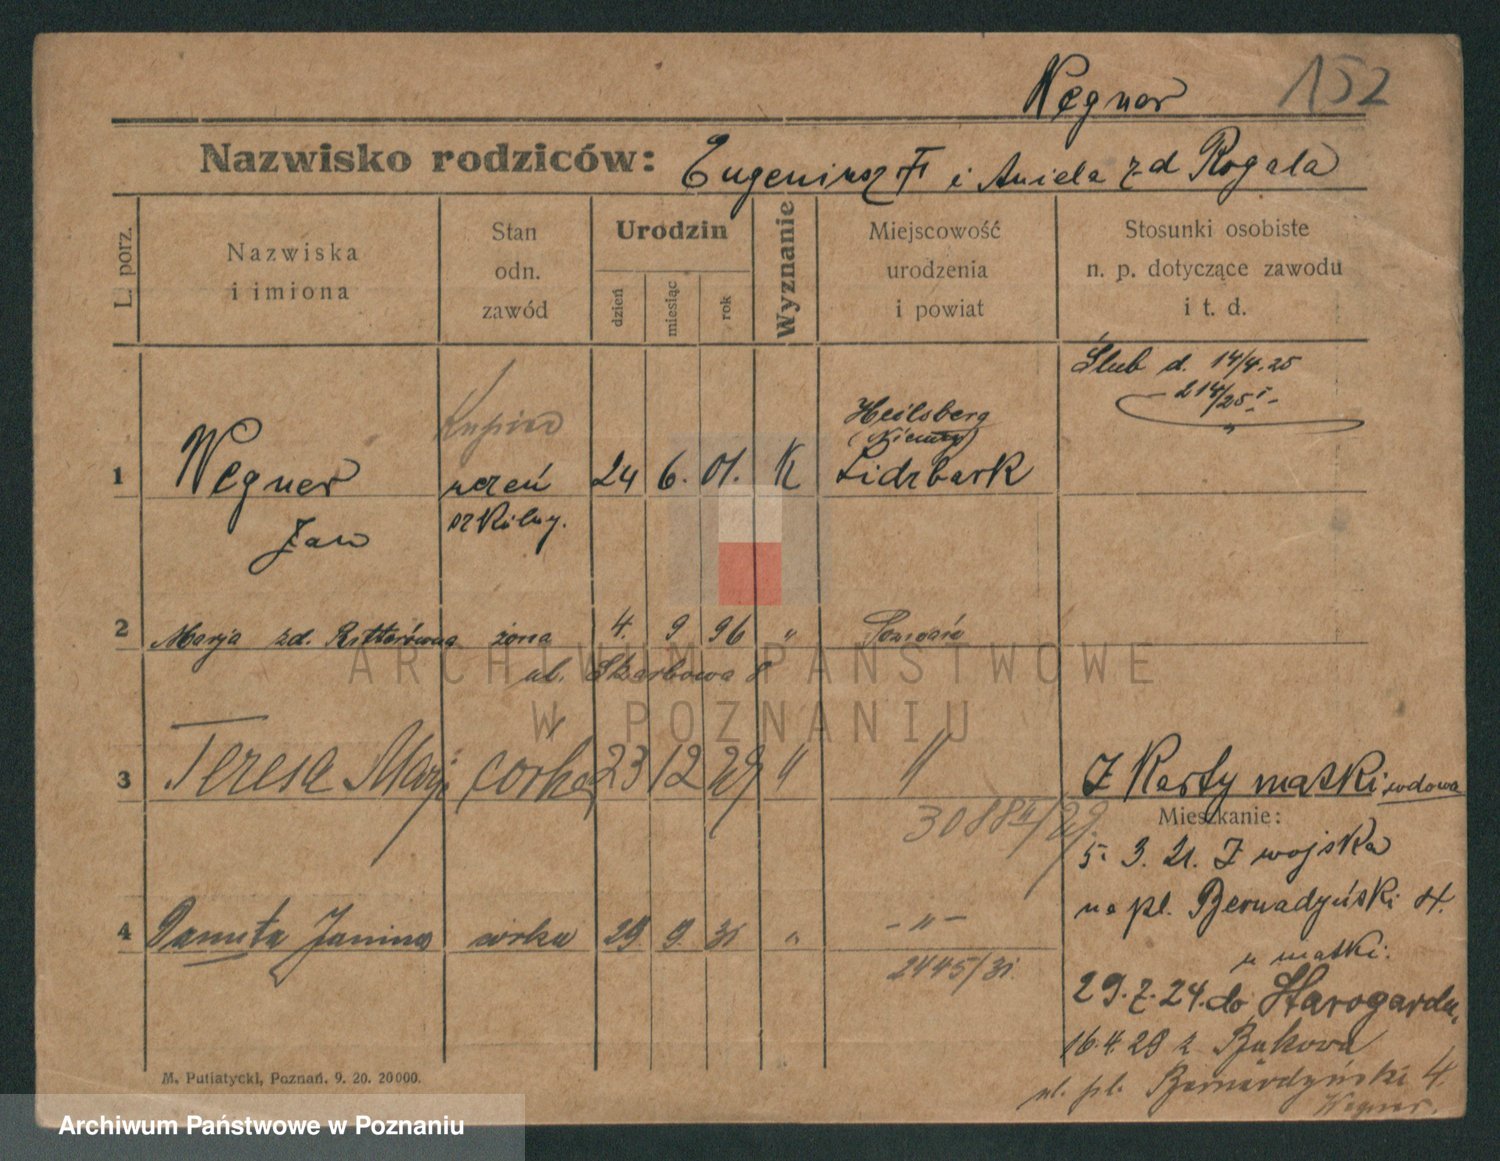 Wegner 152
Nazwisko rodziców: Eugeniusz † i Aniela z d Rogala
L. porz.
Nazwiska
i imiona
Stan
odn.
zawód
Urodzin
dzień
miesiąc
rok
Wyznanie
Miejscowość
urodzenia
i powiat
Stosunki osobiste
n. p. dotyczące zawodu
i t. d.
Ślub d. 14/4.25
214/25 I
Kupiec
Heilsberg
(Niemcy)
1 Wegner uczeń 24 6. 01. K Lidzbark
Jan szkolny.
2 Marja zd. Ritterówna żona 4. 9 96 " Poznań
ul. Skarbowa 8
3 Teresa Marja córka 23 12 29 " "
Z Karty matki wdowa
3088 II/29
Mieszkanie:
5. 3. 21. Z wojska
na pl. Bernadyński 4.
4 Danuta Janina córka 29 9. 31 " - " -
2445/31.
u matki.
29.7.24. do Starogardu,
16.4.28 z Bukowa
ul. pl. Bernardyński 4.
Wegner.
M. Putiatycki, Poznań. 9. 20. 20000.
ARCHIWUM PAŃSTWOWE
W POZNANIU
Archiwum Państwowe w Poznaniu